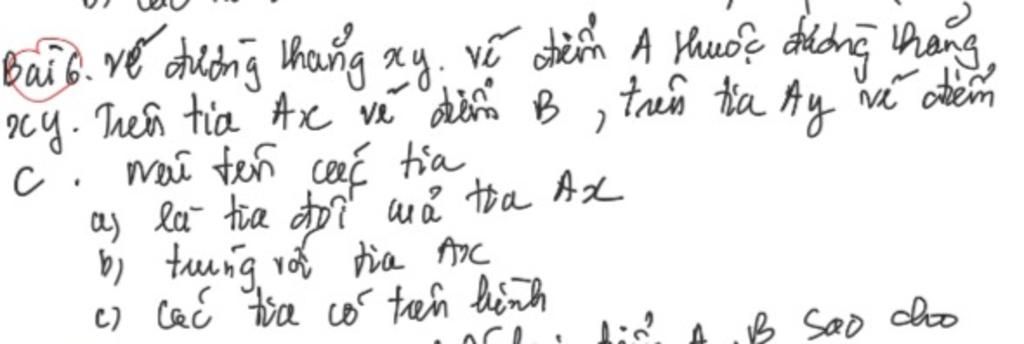 Bài 6. Vẽ đường thẳng xy. Vẽ điểm A thuộc đường thẳng
xy. Trên tia Ax vẽ điểm B, trên tia Ay vẽ điểm
C. Nêu tên các tia
a) là tia đối của tia Ax
b) trùng với tia Ax
c) Các tia có trên hình
A, B sao cho